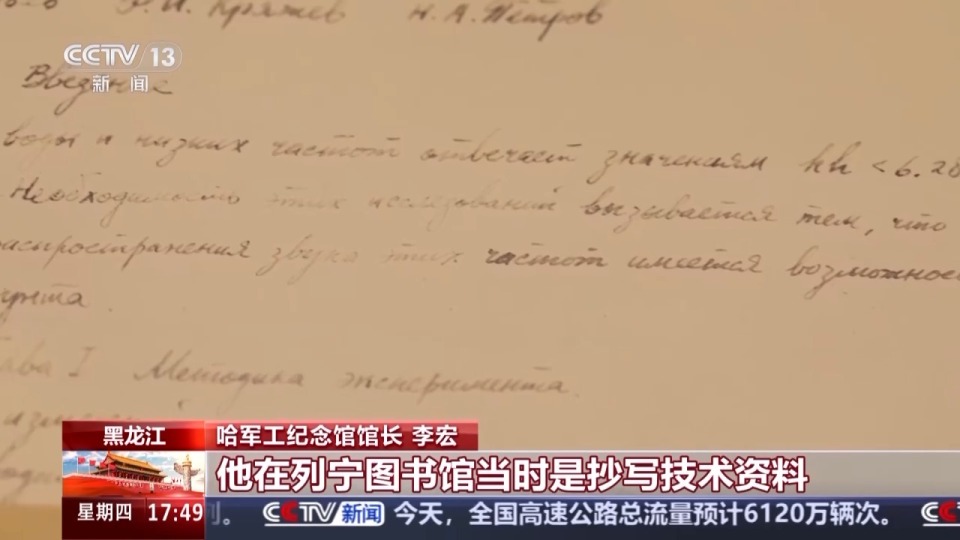 Кряжев Н. А. Петров
CCTV 13
新闻
Введение
воды и низких частот отвечает значениям kh < 6.28
Необходимость этих исследований вызывается тем, что
распространения звука этих частот имеется возможнос
унта
ава I Методика эксперимента.
黑龙江
哈军工纪念馆馆长 李宏
他在列宁图书馆当时是抄写技术资料
星期四 17:49
CCTV 新闻 今天，全国高速公路总流量预计6120万辆次。